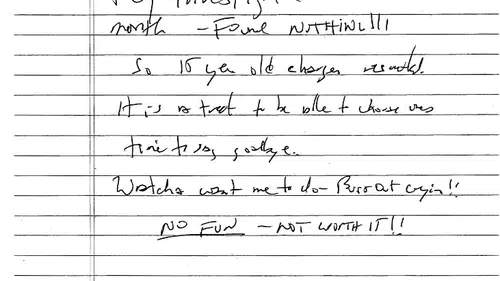 month - Found NOTHING!!!
So 15 year old charges resurrected.
It is a treat to be able to choose ones
time to say goodbye.
Watcha want me to do - Burst out cryin'!!
NO FUN - NOT WORTH IT!!